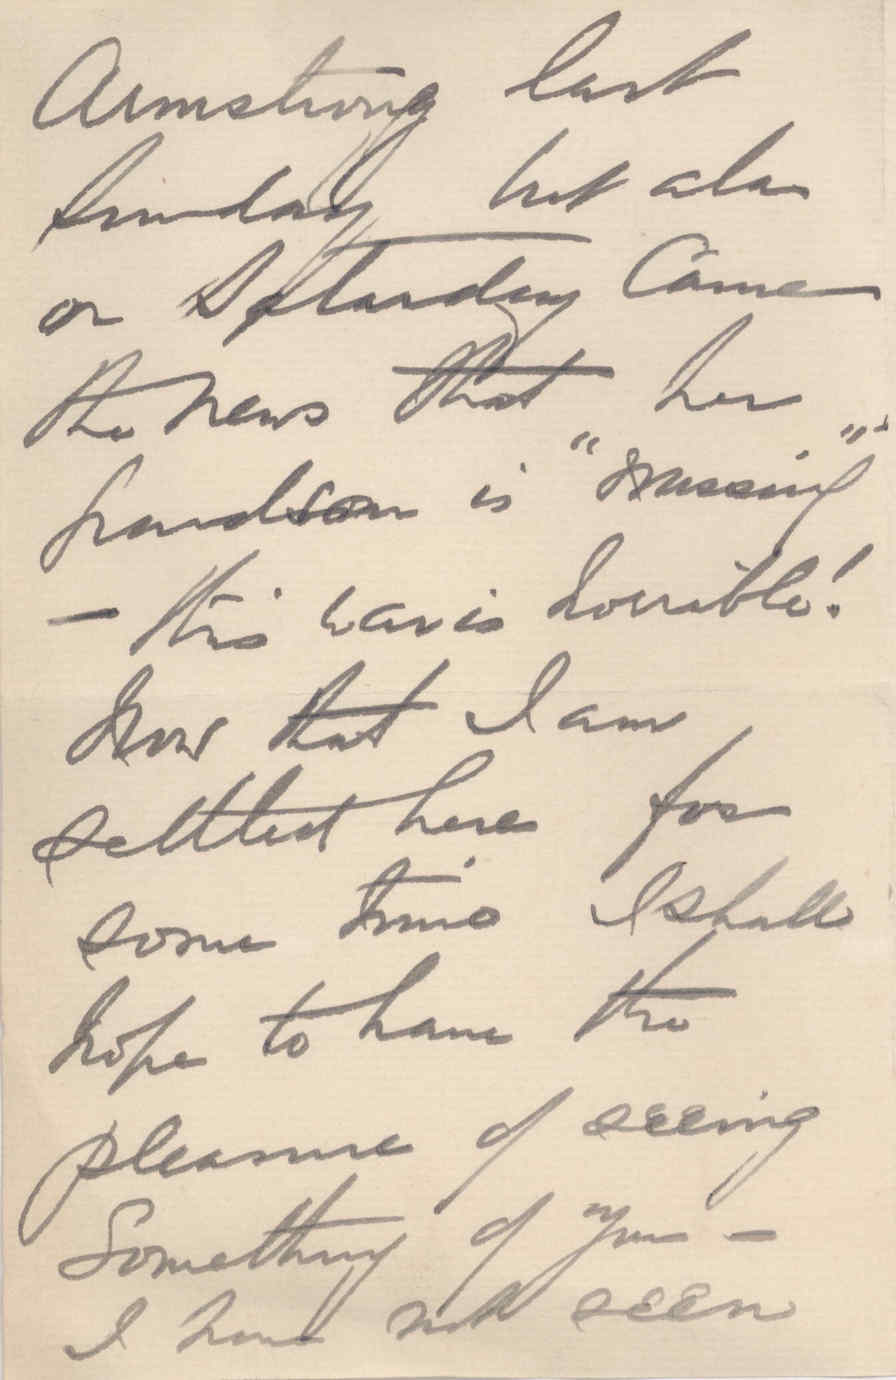 Armstrong last
Sunday but alas
on Saturday Came
the news that her
Grandson is "missing"
- this war is horrible!
Now that I am
settled here for
some time I shall
hope to have the
pleasure of seeing
Something of you -
I have not seen